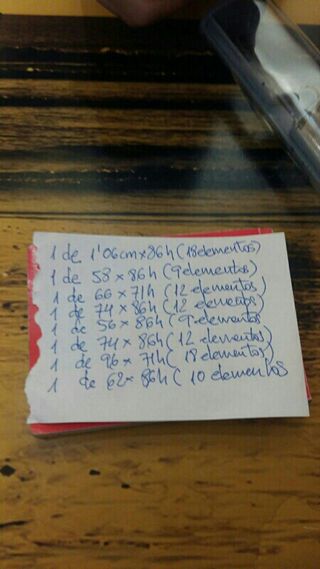 1 de 1'06cm x 86h (18 elementos)
1 de 58 x 86h (9 elementos)
1 de 66 x 71h (12 elementos)
1 de 74 x 86h (12 elementos)
1 de 56 x 86h (9 elementos)
1 de 74 x 86h (12 elementos)
1 de 96 x 71h (18 elementos)
1 de 62 x 86h (10 elementos